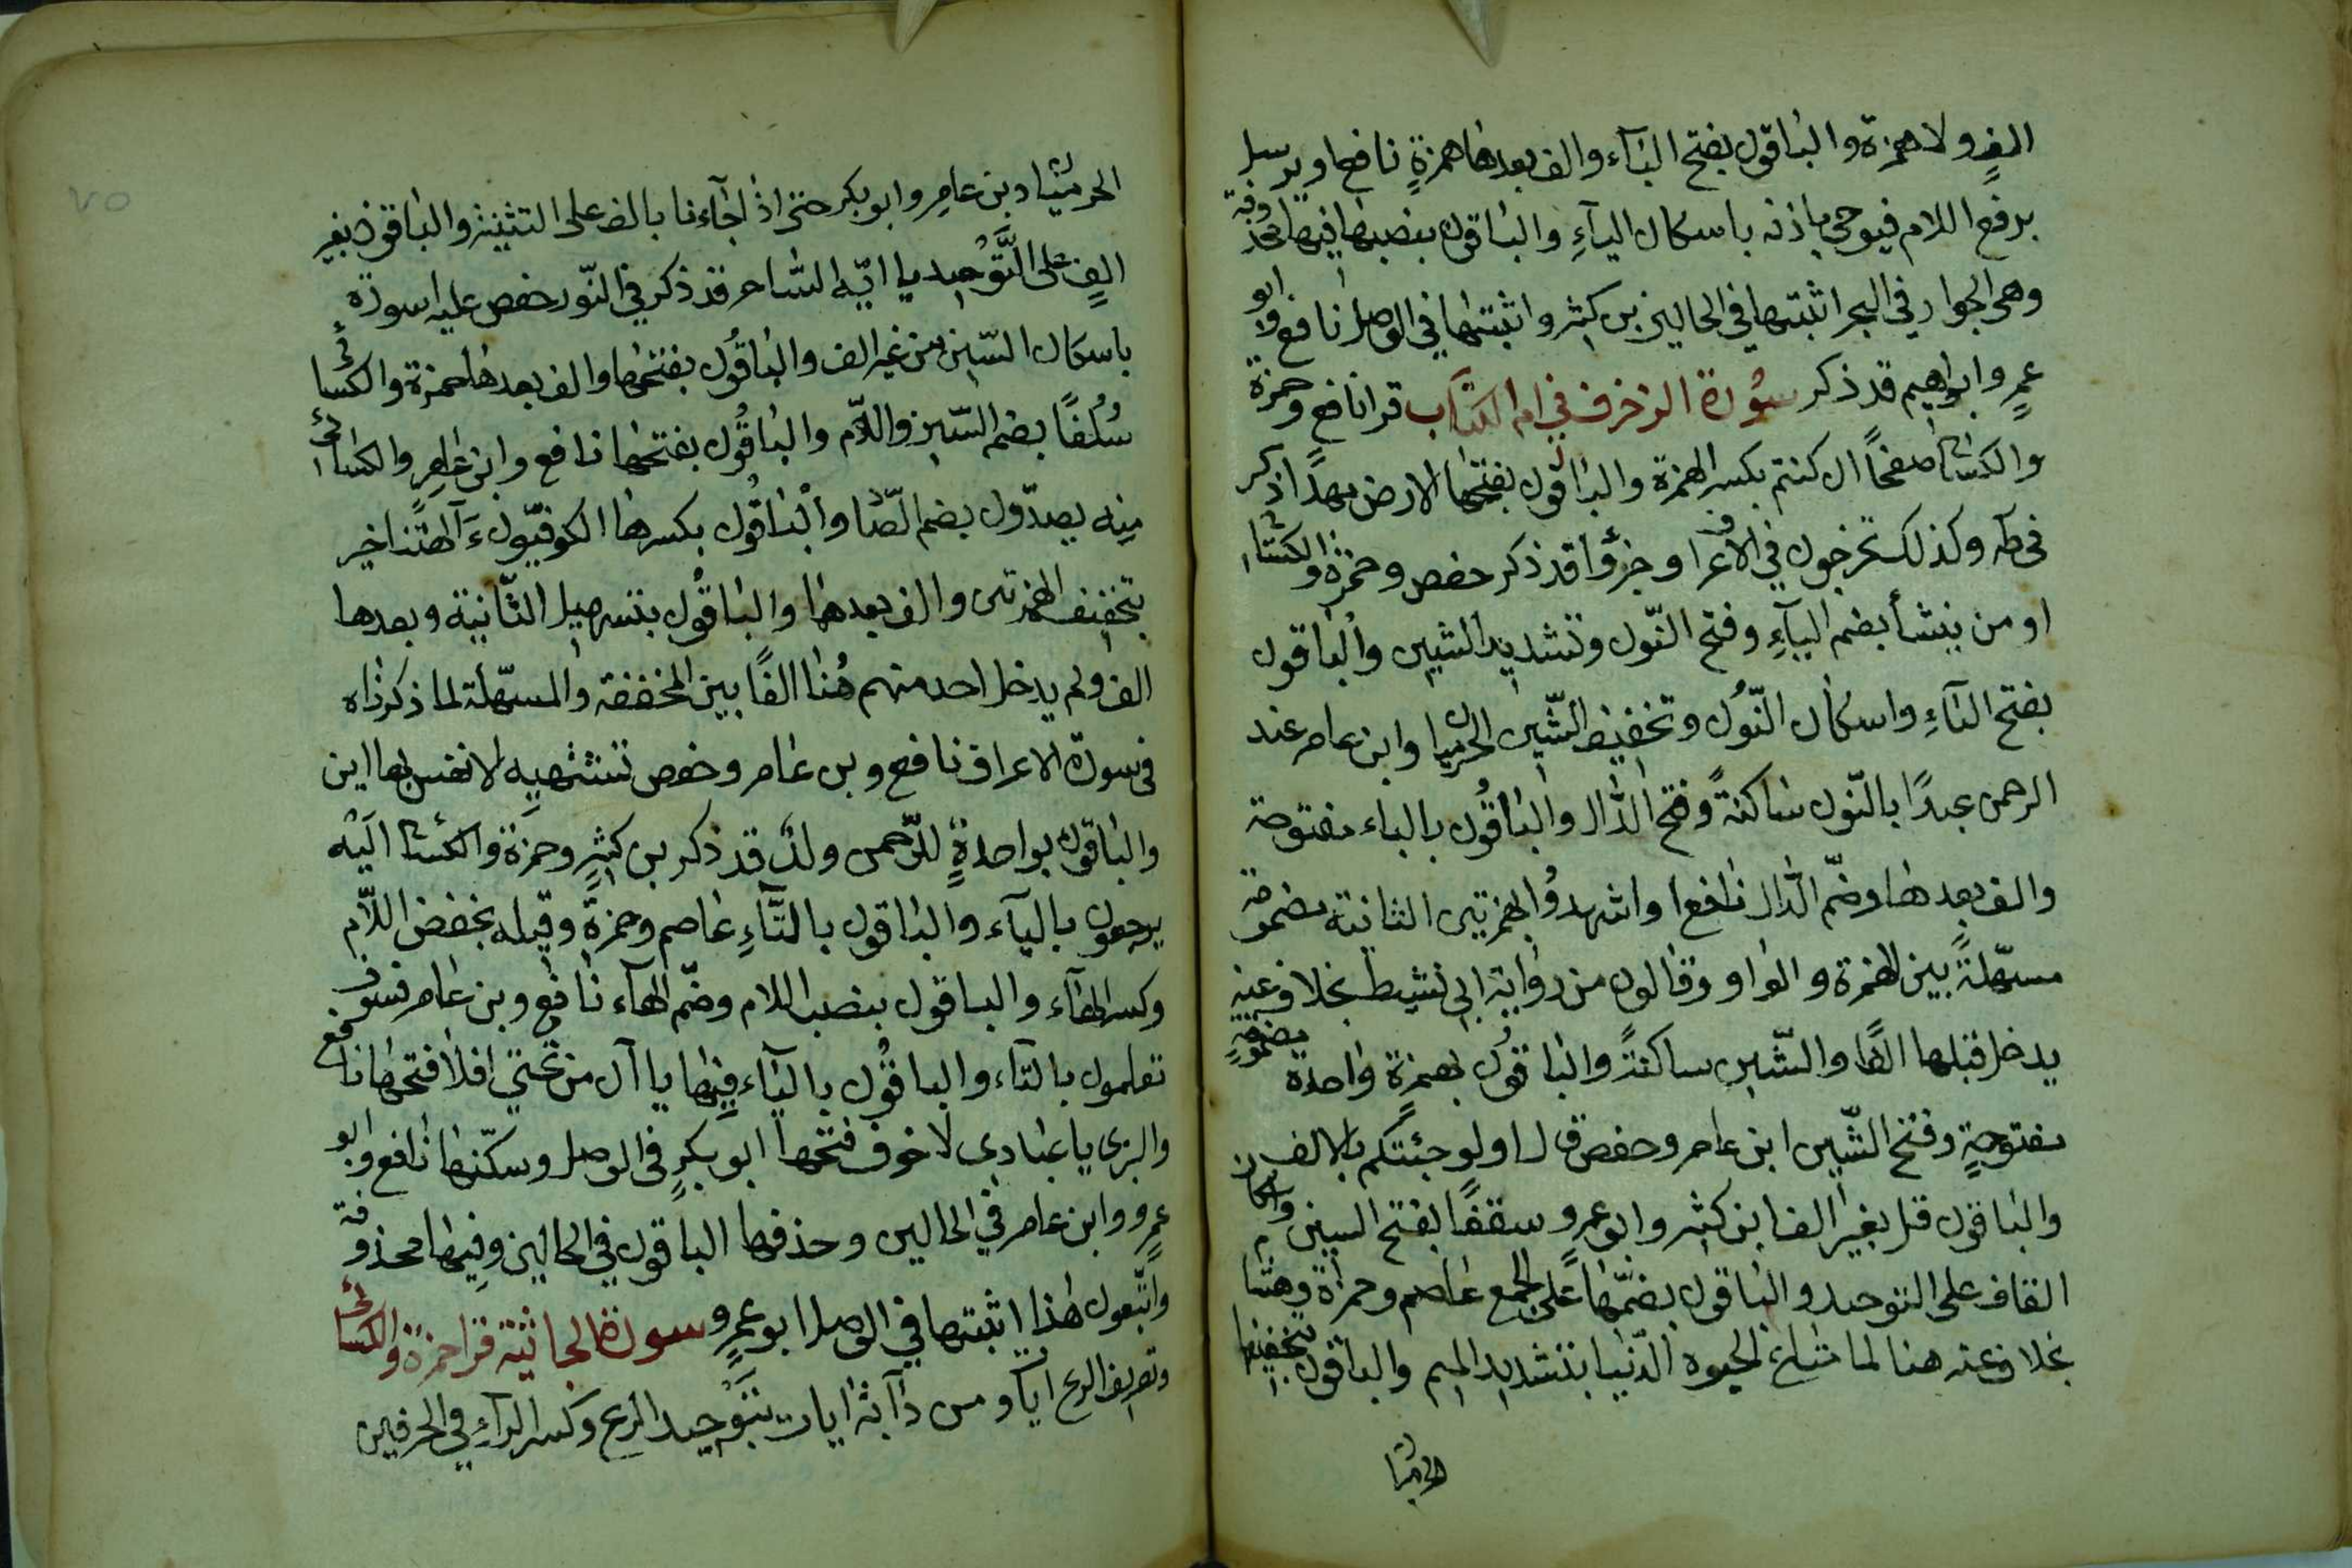 الفٍ ولا همزة والباقون بفتح البآء والف بعدها همزةٍ نافع او يرسل
برفع اللام فيوحى باذنه باسكان اليآءِ والباقون بنصبها فيها محذوفة
وهى الجوار في البحر اثبتها في الحالين بن كثير واثبتها في الوصل نافع وابو
عمرٍ وابراهيم قد ذكر سُورة الزخرف في ام الكتاب قرا نافع وحمزة
والكسائى صفحًا ان كنتم بكسر الهمزة والباقون بفتحها الارض مهدًا ذكر
فى طه وكذلك تخرجون في الاعراف وجزؤًا قد ذكر حفص وحمزة والكسائى
او من ينشأ بضم اليآءِ وفتح النّون وتشديد الشين والباقون
بفتح اليآءِ واسكان النّون وتخفيف الشّين الحرميان وابن عامر عند
الرحمن عبدًا بالنّون ساكنةً وفتح الدّال والباقُون بالباء مفتوحة
والف بعدها وضمّ الدّال نافع ا واشهدُوا بهمزتين الثانية مضمومة
مسهّلةً بين الهمزة والواو وقالون من رواية ابى نشيط بخلاف عنه
يدخل قبلها الفًا والشّين ساكنةً والباقون بهمزةٍ واحدة مضمومةٍ
مفتوحةٍ وفتح الشّين ابن عامر وحفص قال اولو جئتكم بالالف
والباقون قل بغير الف ابن كثير وابو عمرو سقفًا بفتح السين واسكان
القاف على التوحيد والباقون بضمّهما على الجمع عاصم وحمزة وهشام
بخلاف عنه هنا لما متاع الحيوة الدّنيا بتشديد الميم والباقون بتخفيفها
الحرميان
الحرميان وبن عامرٍ وابو بكر حتى اذا جآءنا بالف على التثنية والباقون بغير
الفٍ على التَّوْحيد يا ايّه السّاحر قد ذكر في النّور حفص عليه اسورة
باسكان السّين من غير الف والباقُون بفتحها والف بعدها حمزة والكسائى
سُلُفًا بضم السّين واللّام والباقُون بفتحهما نافع وابن عامرٍ والكسائى
منه يصدّون بضم الصّاد والباقُون بكسرها الكوفيّون ءَآلهتنا خير
بتحقيق الهمزتين والف بعدهما والباقُون بتسهيل الثّانية وبعدها
الف ولم يدخل احد منهم هُنا الفًا بين المخففة والمسهّلة لما ذكرناه
فى سورة الاعراف نافع وبن عامر وحفص تشتهيه الانفس بها اين
والباقون بواحدةٍ للرّحمن ولدٌ قد ذكر بن كثيرٍ وحمزة والكسائى اليْه
يرجعون باليآء والباقون بالتَّآءِ عاصم وحمزة وقيله بخفض اللّام
وكسر الهآء والباقون بنصب اللام وضمّ الهآء نافع وبن عامر فسوف
تعلمون بالتآء والباقُون باليآء فِيْها يا آن من تحتي افلا فتحها نافع
والبزى يا عبادى لا خوف فتحها ابو بكرٍ فى الوصل وسكّنها نافع وابو
عمرٍو وابن عامر في الحالين وحذفها الباقون في الحالين وفِيها محذوفة
واتّبعون هذا اثبتها في الوصل ابو عمرٍو سورة الجاثية قرا حمزة والكسائى
وتصريف الريح ايات و من دآبّة ايات بتَوْحيد الريح وكسر التآءِ في الحرفين